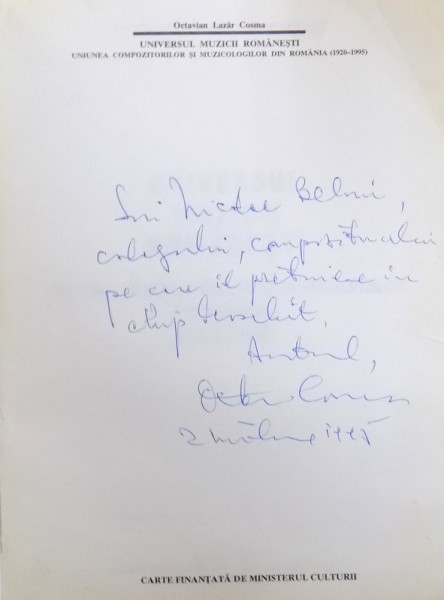 Octavian Lazăr Cosma
UNIVERSUL MUZICII ROMÂNEȘTI
UNIUNEA COMPOZITORILOR ȘI MUZICOLOGILOR DIN ROMÂNIA (1920-1995)
Lui Nicolae Beloiu,
colegului, compozitorului
pe care îl prețuiesc în
chip deosebit,
Autorul,
Octavian Cosma
2 1995
CARTE FINANȚATĂ DE MINISTERUL CULTURII